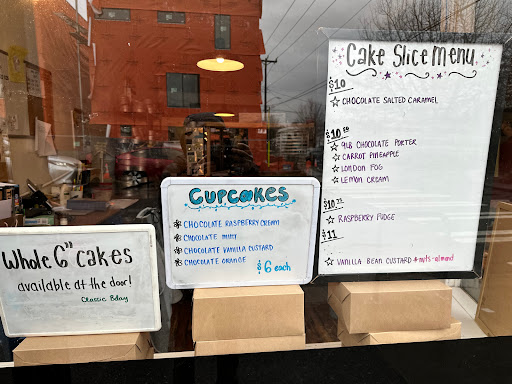 Whole 6" cakes
available at the door!
Classic Bday
Cupcakes
CHOCOLATE RASPBERRY CREAM
CHOCOLATE MINT
CHOCOLATE VANILLA CUSTARD
CHOCOLATE ORANGE
$6 each
Cake Slice Menu
$10
CHOCOLATE SALTED CARAMEL
$10.50
9LB CHOCOLATE PORTER
CARROT PINEAPPLE
LONDON FOG
LEMON CREAM
$10.75
RASPBERRY FUDGE
$11
VANILLA BEAN CUSTARD *nuts-almond